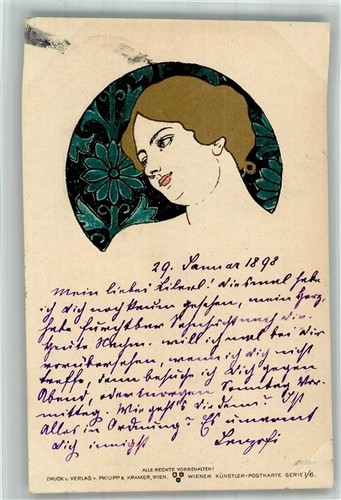 29. Januar 1898
Mein liebes Liberl! Diesmal habe
ich dich noch kaum gesehen, mein Herz,
habe furchtbar Sehnsucht nach dir.
Heute Nachm. will ich mal bei Dir
vorübergehen, wenn ich dich nicht
treffe, dann besuche ich dich gegen
Abend, oder morgen Sonntag Vor-
mittag. Wie geht's dir denn? Ist
Alles in Ordnung? Es umarmt
dich innigst
ALLE RECHTE VORBEHALTEN!
DRUCK u. VERLAG v. PHILIPP & KRAMER, WIEN. WIENER KÜNSTLER-POSTKARTE SERIE I/6.